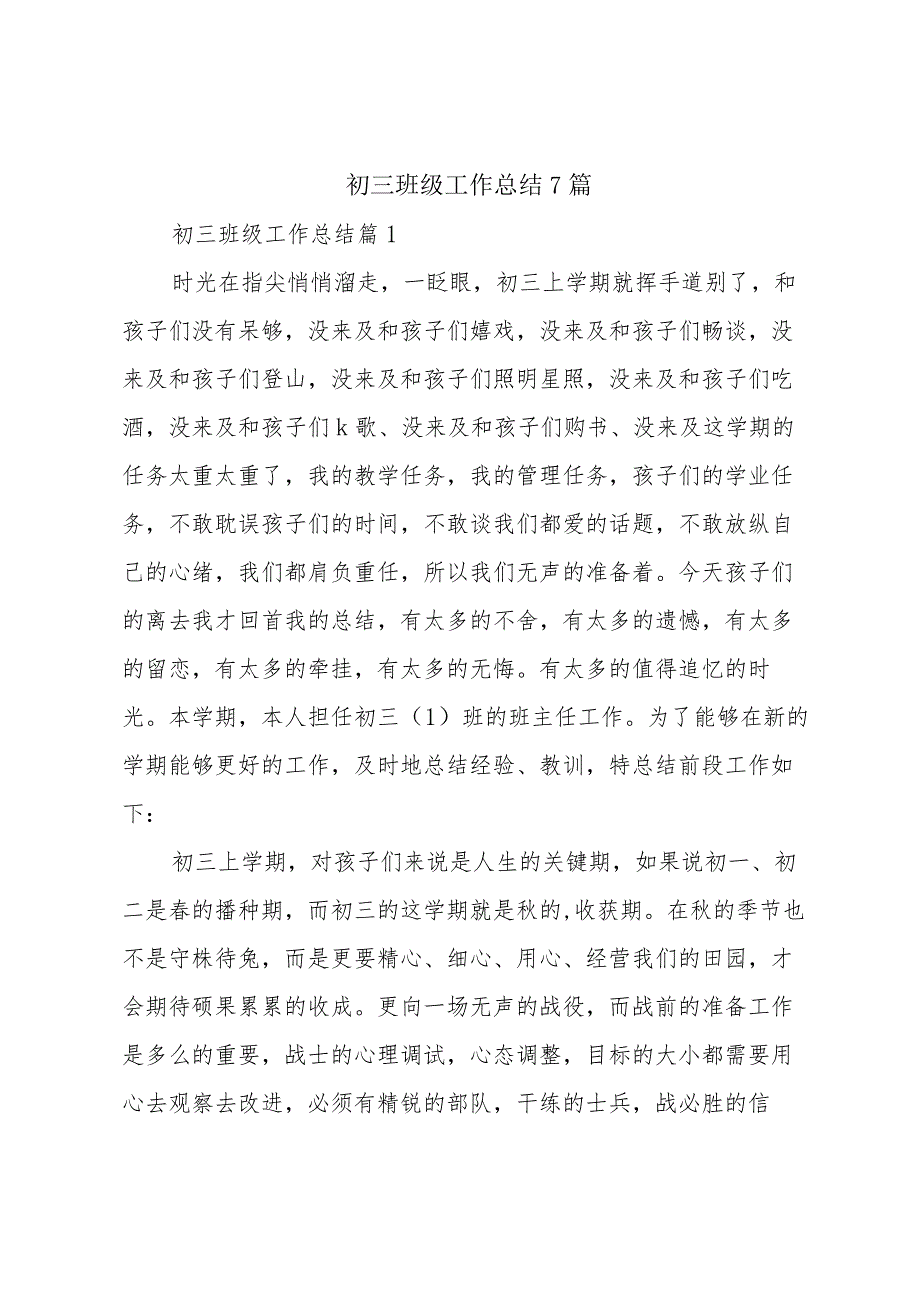 初三班级工作总结7篇
初三班级工作总结篇1
时光在指尖悄悄溜走，一眨眼，初三上学期就挥手道别了，和
孩子们没有呆够，没来及和孩子们嬉戏，没来及和孩子们畅谈，没
来及和孩子们登山，没来及和孩子们照明星照，没来及和孩子们吃
酒，没来及和孩子们k歌、没来及和孩子们购书、没来及这学期的
任务太重太重了，我的教学任务，我的管理任务，孩子们的学业任
务，不敢耽误孩子们的时间，不敢谈我们都爱的话题，不敢放纵自
己的心绪，我们都肩负重任，所以我们无声的准备着。今天孩子们
的离去我才回首我的总结，有太多的不舍，有太多的遗憾，有太多
的留恋，有太多的牵挂，有太多的无悔。有太多的值得追忆的时
光。本学期，本人担任初三（1）班的班主任工作。为了能够在新的
学期能够更好的工作，及时地总结经验、教训，特总结前段工作如
下：
初三上学期，对孩子们来说是人生的关键期，如果说初一、初
二是春的播种期，而初三的这学期就是秋的,收获期。在秋的季节也
不是守株待兔，而是更要精心、细心、用心、经营我们的田园，才
会期待硕果累累的收成。更向一场无声的战役，而战前的准备工作
是多么的重要，战士的心理调试，心态调整，目标的大小都需要用
心去观察去改进，必须有精锐的部队，干练的士兵，战必胜的信